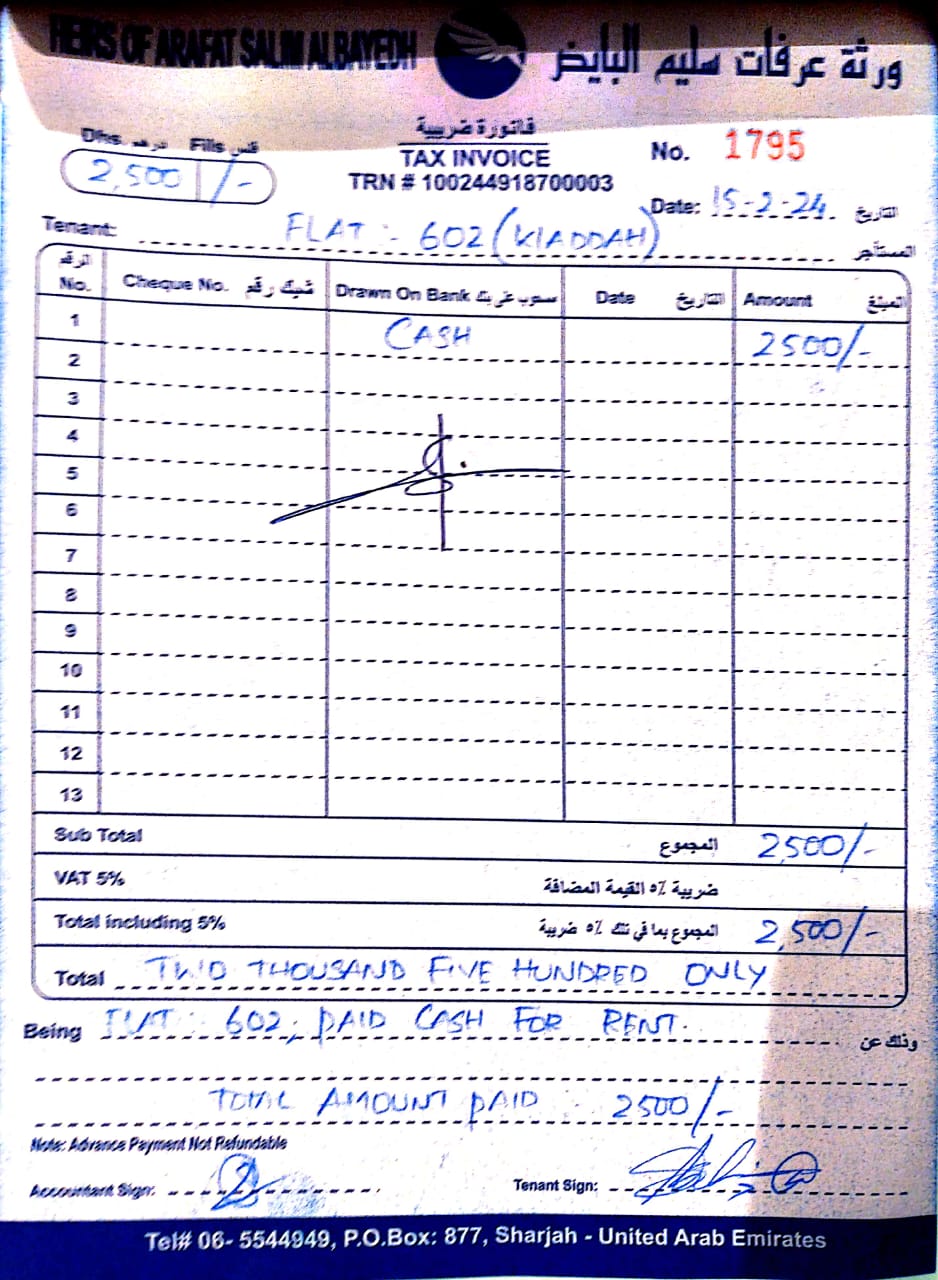 HEIRS OF ARAFAT SALIM ALBAYEDH ورثة عرفات سليم البايض
فاتورة ضريبية
Dhs. درهم Fills فلس
2,500 /-
TAX INVOICE
TRN # 100244918700003
No. 1795
Date: 15-2-24 التاريخ
Tenant: FLAT :- 602 (KIADDAH) المستأجر
الرقم No. Cheque No. شيك رقم Drawn On Bank مسحوب على بنك Date التاريخ Amount المبلغ
1 CASH 2500/-
2
3
4
5
6
7
8
9
10
11
12
13
Sub Total المجموع 2,500/-
VAT 5% ضريبة ٥٪ القيمة المضافة
Total including 5% المجموع بما في ذلك ٥٪ ضريبة 2,500/-
Total TWO THOUSAND FIVE HUNDRED ONLY
Being FLAT : 602, PAID CASH FOR RENT. وذلك عن
TOTAL AMOUNT PAID 2500/-
Note: Advance Payment Not Refundable
Accountant Sign: Tenant Sign:
Tel# 06- 5544949, P.O.Box: 877, Sharjah - United Arab Emirates